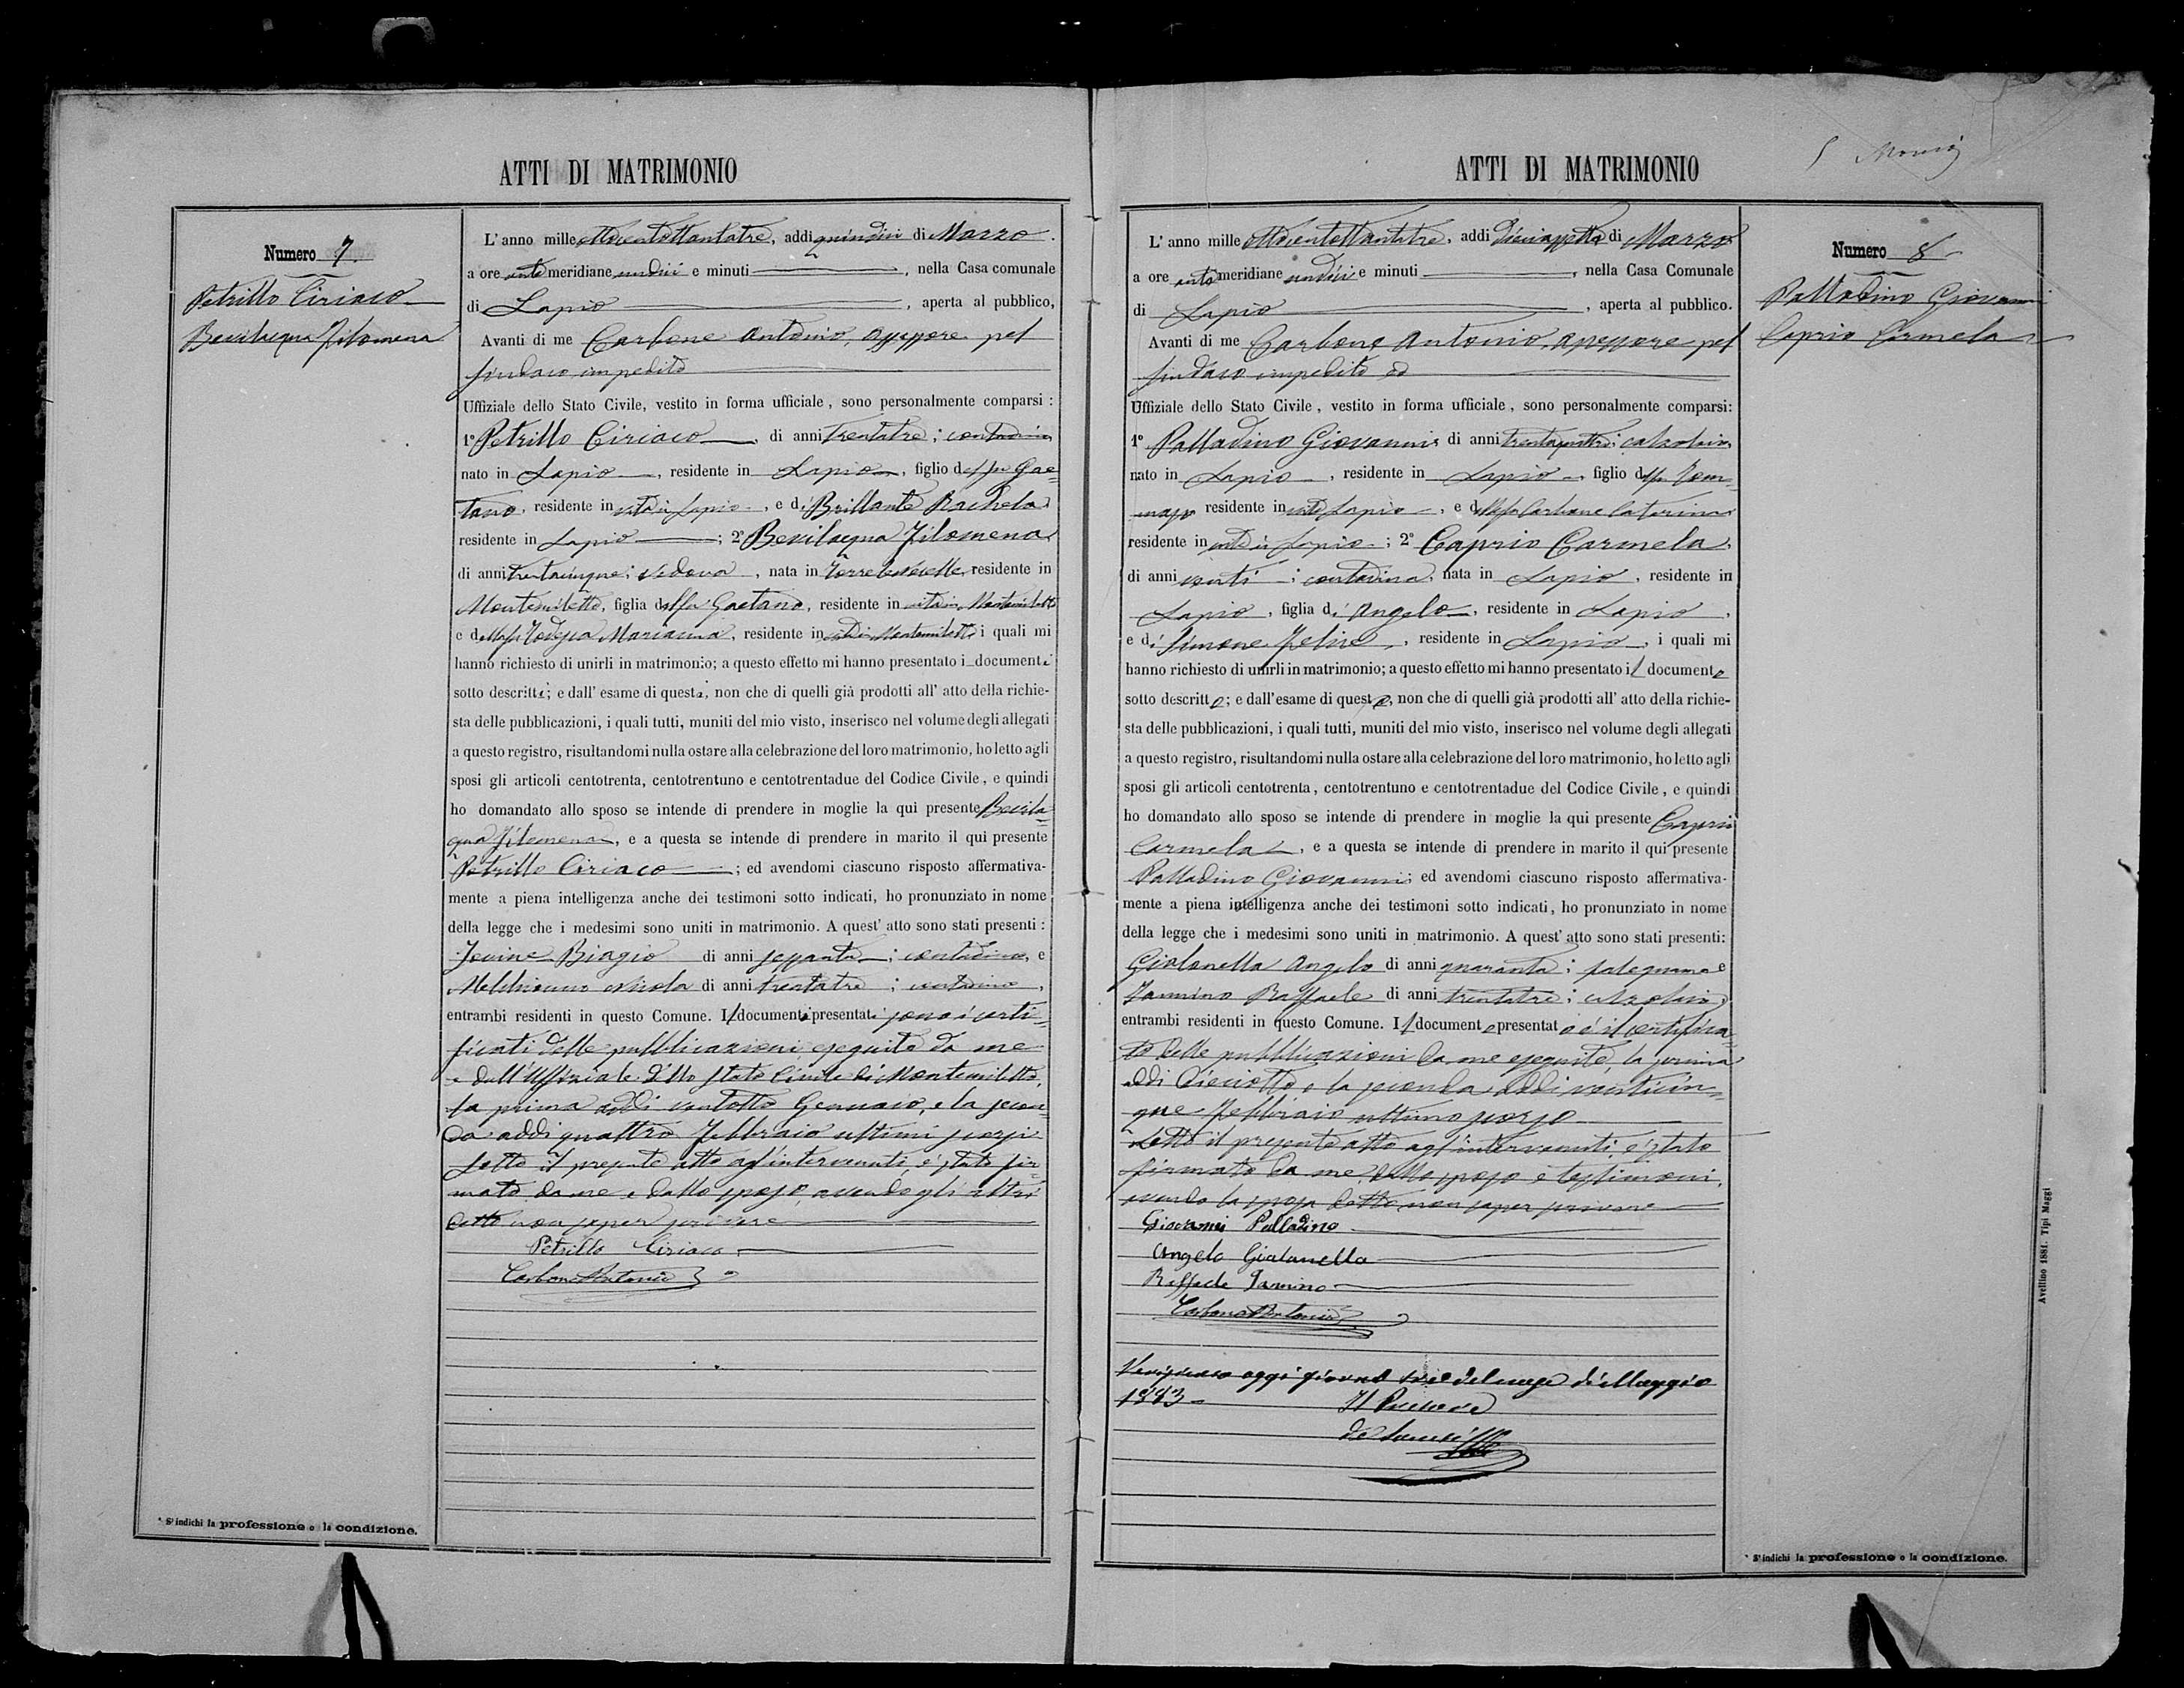 ATTI DI MATRIMONIO
Numero 7
Petrillo Ciriaco
Bevilacqua Filomena
L'anno mille ottocentottantatre, addi quindici di Marzo
a ore anti meridiane undici e minuti, nella Casa comunale
di Lapio, aperta al pubblico,
Avanti di me Carbone Antonio, assessore pel
sindaco impedito
Uffiziale dello Stato Civile, vestito in forma ufficiale, sono personalmente comparsi:
1° Petrillo Ciriaco, di anni trentatre; contadino
nato in Lapio, residente in Lapio, figlio del fu Gae=
tano, residente in vita in Lapio, e di Brillante Rachela
residente in Lapio; 2° Bevilacqua Filomena
di anni trentacinque; vedova, nata in Torre le Nocelle, residente in
Montemiletto, figlia del fu Gaetano, residente in vita in Montemiletto
e della fu Marianna, residente in vita in Montemiletto i quali mi
hanno richiesto di unirli in matrimonio; a questo effetto mi hanno presentato i documenti
sotto descritti; e dall'esame di questi, non che di quelli già prodotti all'atto della richie-
sta delle pubblicazioni, i quali tutti, muniti del mio visto, inserisco nel volume degli allegati
a questo registro, risultandomi nulla ostare alla celebrazione del loro matrimonio, ho letto agli
sposi gli articoli centotrenta, centotrentuno e centotrentadue del Codice Civile, e quindi
ho domandato allo sposo se intende di prendere in moglie la qui presente Bevila=
qua Filomena, e a questa se intende di prendere in marito il qui presente
Petrillo Ciriaco; ed avendomi ciascuno risposto affermativa-
mente a piena intelligenza anche dei testimoni sotto indicati, ho pronunziato in nome
della legge che i medesimi sono uniti in matrimonio. A quest'atto sono stati presenti:
Jovine Biagio di anni sessanta; contadino, e
Melchionno Nicola di anni trentatre; contadino,
entrambi residenti in questo Comune. I documenti presentati sono i certi=
ficati delle pubblicazioni eseguite da me
e dall'Uffiziale dello Stato Civile di Montemiletto,
la prima addi ventotto Gennaio, e la secon=
da addi quattro Febbraio ultimi scorsi
Letto il presente atto agl'intervenuti, è stato fir=
mato da me e dallo sposo, avendo gli altri
detto non saper scrivere
Petrillo Ciriaco
Carbone Antonio
* S'indichi la professione o la condizione.
ATTI DI MATRIMONIO
Numero 8
Palladino Giovanni
Caprio Carmela
L'anno mille ottocentottantatre, addi diciassette di Marzo
a ore anti meridiane undici e minuti, nella Casa Comunale
di Lapio, aperta al pubblico.
Avanti di me Carbone Antonio, assessore pel
sindaco impedito ed
Uffiziale dello Stato Civile, vestito in forma ufficiale, sono personalmente comparsi:
1° Palladino Giovanni, di anni trentaquattro; calzolaio,
nato in Lapio, residente in Lapio, figlio del fu Tom=
maso residente in vita Lapio, e della fu Carbone Caterina
residente in vita in Lapio; 2° Caprio Carmela,
di anni venti; contadina, nata in Lapio, residente in
Lapio, figlia di Angelo, residente in Lapio,
e di Simone Felice, residente in Lapio, i quali mi
hanno richiesto di unirli in matrimonio; a questo effetto mi hanno presentato il documento
sotto descritto; e dall'esame di questo, non che di quelli già prodotti all'atto della richie-
sta delle pubblicazioni, i quali tutti, muniti del mio visto, inserisco nel volume degli allegati
a questo registro, risultandomi nulla ostare alla celebrazione del loro matrimonio, ho letto agli
sposi gli articoli centotrenta, centotrentuno e centotrentadue del Codice Civile, e quindi
ho domandato allo sposo se intende di prendere in moglie la qui presente Caprio
Carmela, e a questa se intende di prendere in marito il qui presente
Palladino Giovanni; ed avendomi ciascuno risposto affermativa-
mente a piena intelligenza anche dei testimoni sotto indicati, ho pronunziato in nome
della legge che i medesimi sono uniti in matrimonio. A quest'atto sono stati presenti:
Gialanella Angelo di anni quaranta; falegname e
Iannino Raffaele di anni trentatre; calzolaio,
entrambi residenti in questo Comune. Il documento presentato è il certifica=
to delle pubblicazioni da me eseguite, la prima
addi dieciotto e la seconda addi venticin=
que Febbraio ultimo scorso
Letto il presente atto agl'intervenuti, è stato
firmato da me, dallo sposo e testimoni,
avendo la sposa detto non saper scrivere
Giovanni Palladino
Angelo Gialanella
Raffaele Iannino
Carbone Antonio
Verificato oggi giorno tre del mese di Maggio
1883
Il Pretore
* S'indichi la professione o la condizione.
Avellino 1881. Tipi Maggi